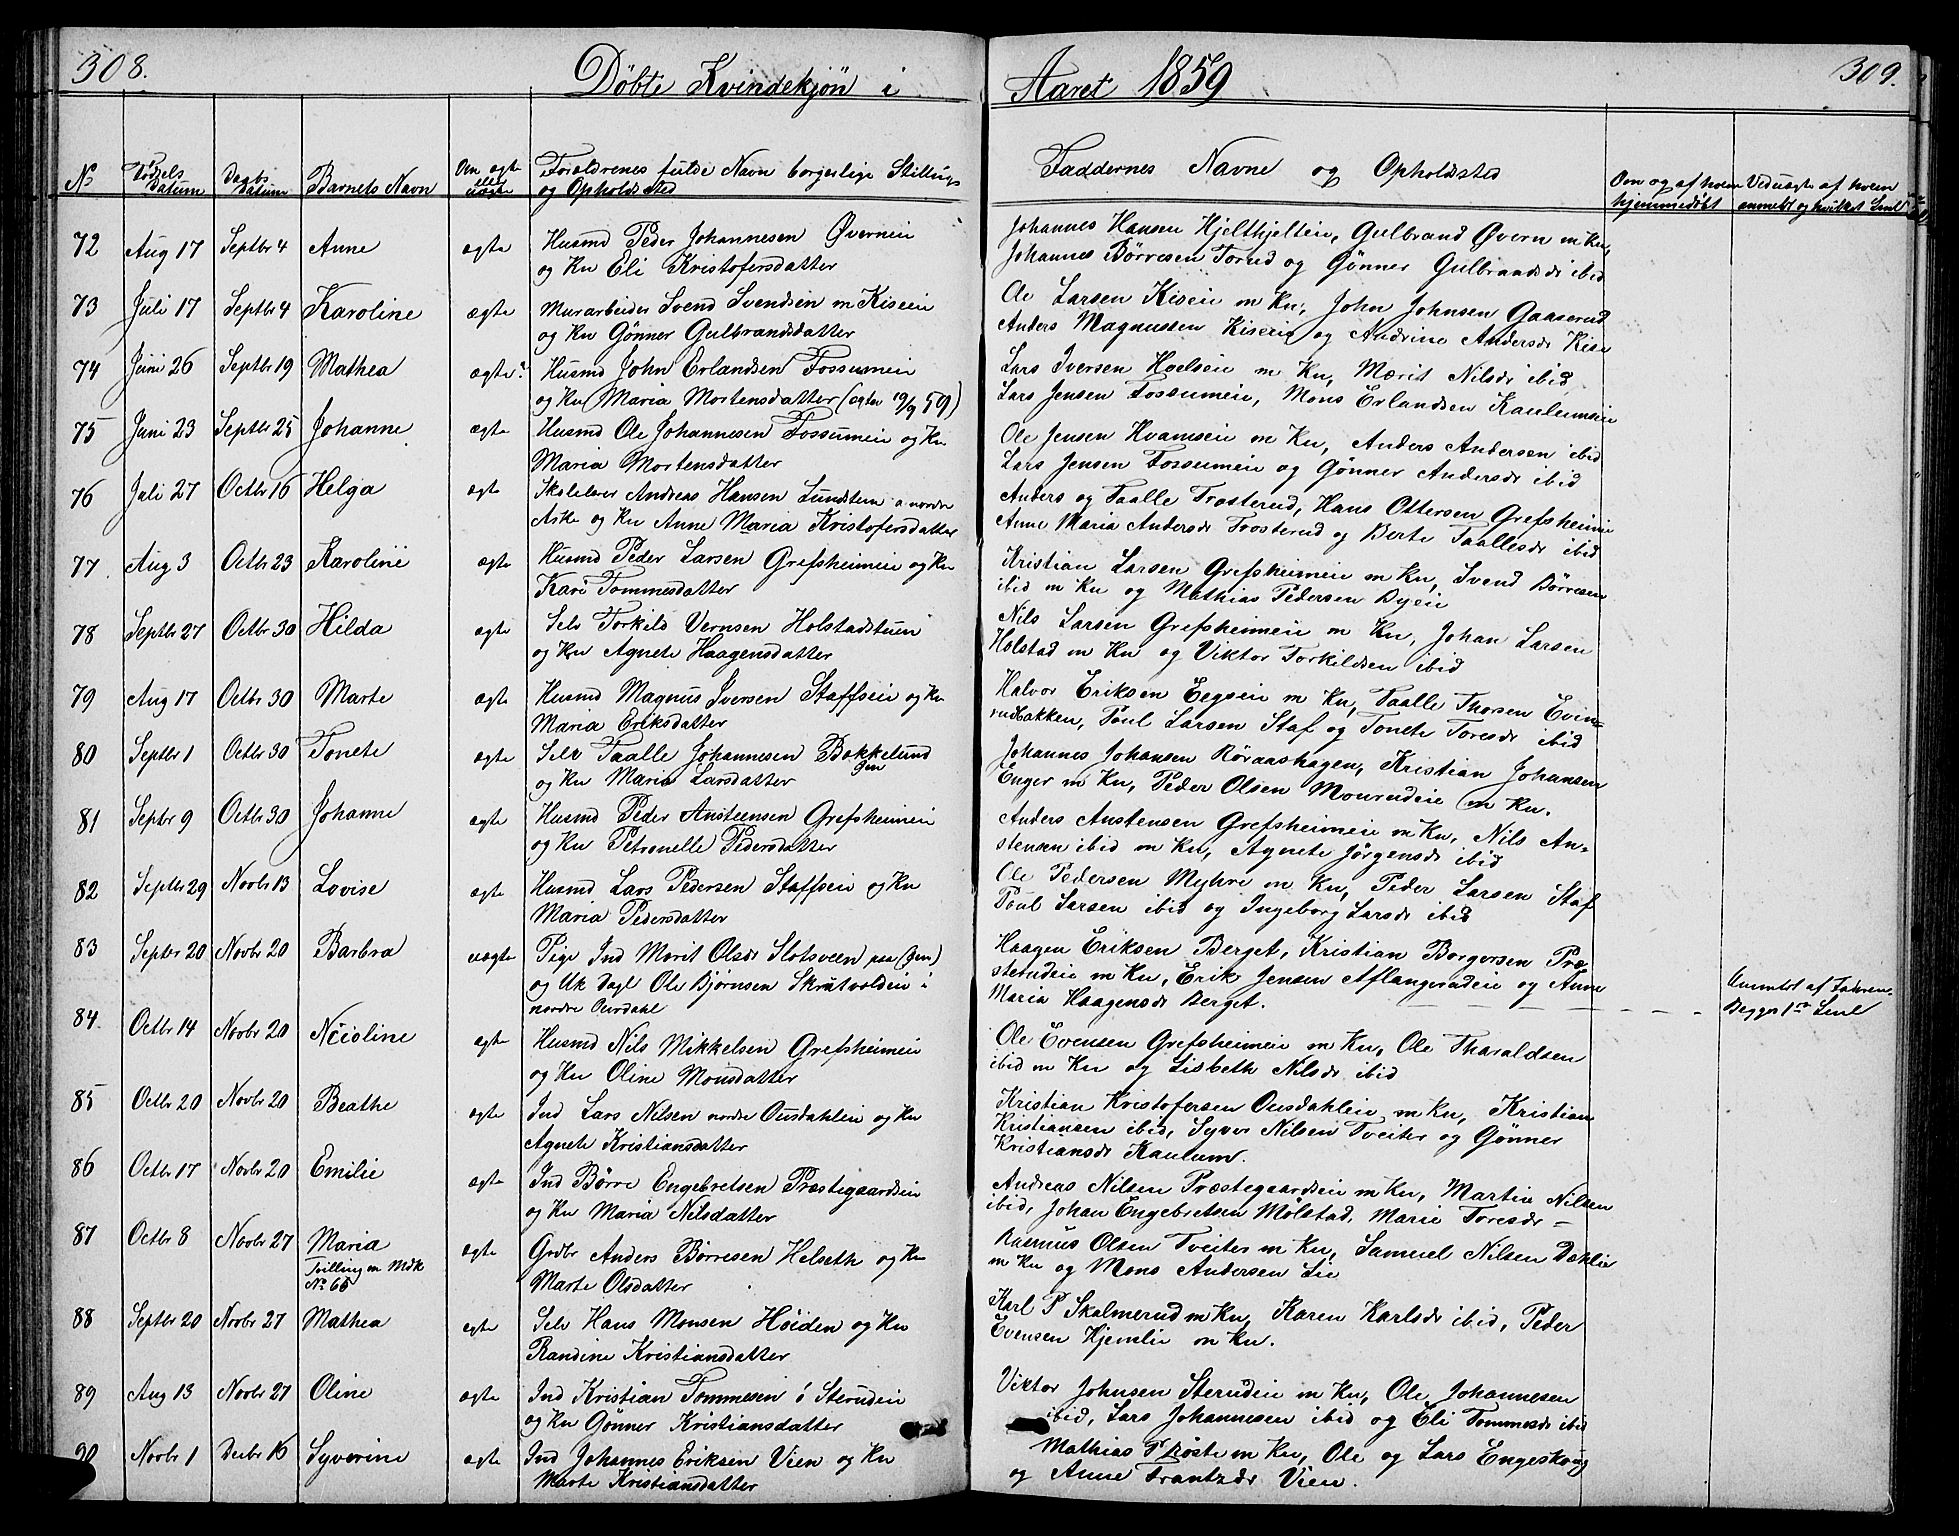 308.
Döbte Kvindekjön i
Aaret 1859
309.
No
Födsels Datum
Daabs Datum
Barnets Navn
Om ægte eller uægte
Forældrenes fulde Navn borgerlige Stilling og Opholdssted
Faddernes Navne og Opholdssted
Om og af hvem hjemmedöbt
Ved uægte af hvem anmeldt og hvilket Leiermaal
72 Aug 17 Septbr 4 Anne ægte Husmd Peder Johannesen Øverneie
og Kn Eli Kristofersdatter
Johannes Hansen Hjelthjelteie, Gulbrand Øvern m Kn,
Johannes Børresen Torud og Gønner Gulbrandsdr ibid
73 Juli 17 Septbr 4 Karoline ægte Murarbeider Svend Svendsen m Kiseeie
og Kn Gønner Gulbrandsdatter
Ole Larsen Kiseie m Kn, John Johnsen Gaaserud
Anders Magnussen Kiseeie og Andrine Andersdr Kise
74 Juni 26 Septbr 19 Mathea ægte? Husmd John Erlandsen Fossumeie
og Kn Maria Mortensdatter (egtev 19/9 59)
Lars Iversen Hoelseie m Kn, Marit Nilsdr ibid,
Lars Jensen Fossumeie, Mons Erlandsen Kaulumseie
75 Juni 23 Septbr 25 Johanne ægte Husmd Ole Johannesen Fossumeie og Kn
Maria Mortensdatter
Ole Jensen Hvamseie m Kn, Anders Andersen ibid
Lars Jensen Fossumeie og Gønner Andersdr ibid
76 Juli 27 Octbr 16 Helga ægte Skolelærer Andreas Hansen Lundstein a nordre
Aske og Kn Anne Maria Kristofersdatter
Anders og Taalle Frosterud, Hans Ottersen Grefsheimeie
Anne Maria Andersdr Frosterud og Berte Taallesdr ibid
77. Aug 3 Octbr 23 Karoline ægte Husmd Peder Larsen Grefsheimeie og Kn
Kari Tommesdatter
Kristian Larsen Grefsheimeie m Kn, Svend Børresen
ibid m Kn og Mathias Pedersen Byeie
78 Septbr 27 Octbr 30 Hilda ægte Selv Torkild Vernsen Holstadstuen
og Kn Agnete Haagensdatter
Nils Larsen Grefsheimeie m Kn, Johan Larsen
Holstad m Kn og Viktor Torkildsen ibid
79 Aug 17 Octbr 30 Marte ægte Husmd Magnus Iversen Staffseie og Kn
Maria Eriksdatter
Halvor Eriksen Eegseie m Kn, Taalle Thorsen Evin-
rudbakken, Poul Larsen Staf og Tonete Toresdr ibid
80 Septbr 1 Octbr 30 Tonete ægte Selv Taalle Johannesen Bækkelund
og Kn Maria Larsdatter
Johannes Johansen Röraashagen, Kristian Johansen
Enger m Kn, Peder Olsen Mourudeie m Kn.
81 Septbr 9 Octbr 30 Johanne ægte Husmd Peder Anstensen Grefsheimeie
og Kn Petronelle Pedersdatter
Anders Anstensen Grefsheimeie m Kn, Nils An-
stensen ibid m Kn, Agnete Jörgensdr ibid
82 Septbr 29 Novbr 13 Lovise ægte Husmd Lars Pedersen Staffseie og Kn
Maria Pedersdatter
Ole Pedersen Myhre m Kn, Peder Larsen Staf
Poul Larsen ibid og Ingeborg Larsdr ibid
83 Septbr 20 Novbr 20 Barbra uægte Pige Ind Marit Olsdr Slotsveen paa
og Uk Dagl Ole Bjørnsen Skrutvoldeie i
nordre Ourdahl
Haagen Eriksen Berget, Kristian Borgersen Præ-
sterudeie m Kn, Erik Jensen Aflangerudeie og Anne
Maria Haagensdr Berget.
Anmeldt af Faderen.
Begges 1ste Leml
84. Octbr 14 Novbr 20 Nicoline ægte Husmd Nils Mikkelsen Grefsheimeie
og Kn Oline Monsdatter
Ole Evensen Grefsheimeie m Kn, Ole Tharaldsen
ibid m Kn og Lisbeth Nilsdr ibid
85 Octbr 20 Novbr 20 Beathe ægte Ind Lars Nilsen nordre Ousdahleie og Kn
Agnete Kristiansdatter
Kristian Kristofersen Ousdahleie m Kn, Kristian
Kristiansen ibid, Syver Nilsen Tveiter og Gönner
Kristiansdr Kaulum.
86 Octbr 17 Novbr 20 Emilie ægte Ind Börre Engebretsen Præstegaardseie
og Kn Maria Nilsdatter
Andreas Nilsen Præstegaardseie m Kn, Martin Nilsen
ibid, Johan Engebretsen Mölstad, Marie Toresdr –
87 Octbr 8 Novbr 27 Maria ægte Grdbr Anders Börresen Helseth og Kn
Tvilling m Mdk
No 65
Marte Olsdatter
Rasmus Olsen Tveiter m Kn, Samuel Nilsen Dæhlie
m Kn og Mons Andersen Lie
88 Septbr 20 Novbr 27 Mathea ægte Selv Hans Monsen Høiden og Kn
Randine Kristiansdatter
Karl P Skalmerud m Kn, Karen Karlsdr ibid, Peder
Evensen Hjemlie m Kn.
89 Aug 13 Novbr 27 Oline ægte Ind Kristian Tommesen i Sterudeie
og Kn Gönner Kristiansdatter
Viktor Johnsen Sterudeie m Kn, Ole Johannesen
ibid, Lars Johannesen ibid og Eli Tommesdr ibid
90 Novbr 1 Decbr 16 Syverine ægte Ind Johannes Eriksen Vien og Kn
Marte Kristiansdatter
Mathias P Röste m Kn, Ole og Lars Engeskoug
og Anne Frantzdr Vien.